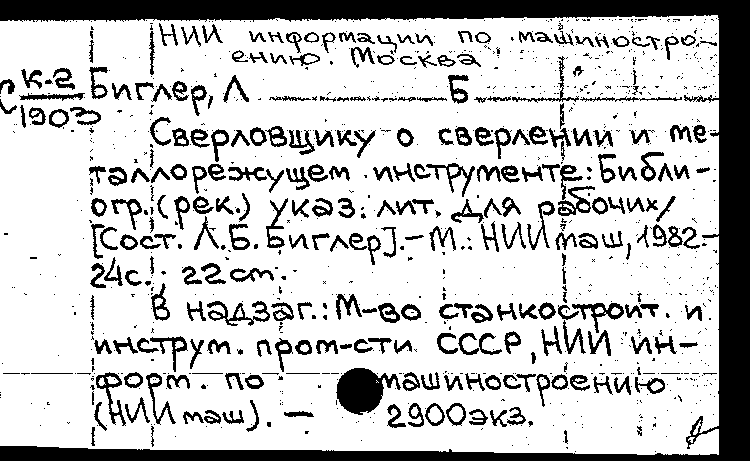 НИИ информации по машиностро-
ению. Москва
С К-2
1903
Биглер, Л Б
Сверловщику о сверлении и ме-
таллорежущем инструменте: Библи-
огр. (рек.) указ. лит. для рабочих/
[Сост. Л.Б. Биглер].-М.: НИИмаш, 1982.-
24с.; 22 см.
В надзаг.: М-во станкостроит. и
инструм. пром-сти СССР, НИИ ин-
форм. по машиностроению
(НИИмаш). — 2900экз.